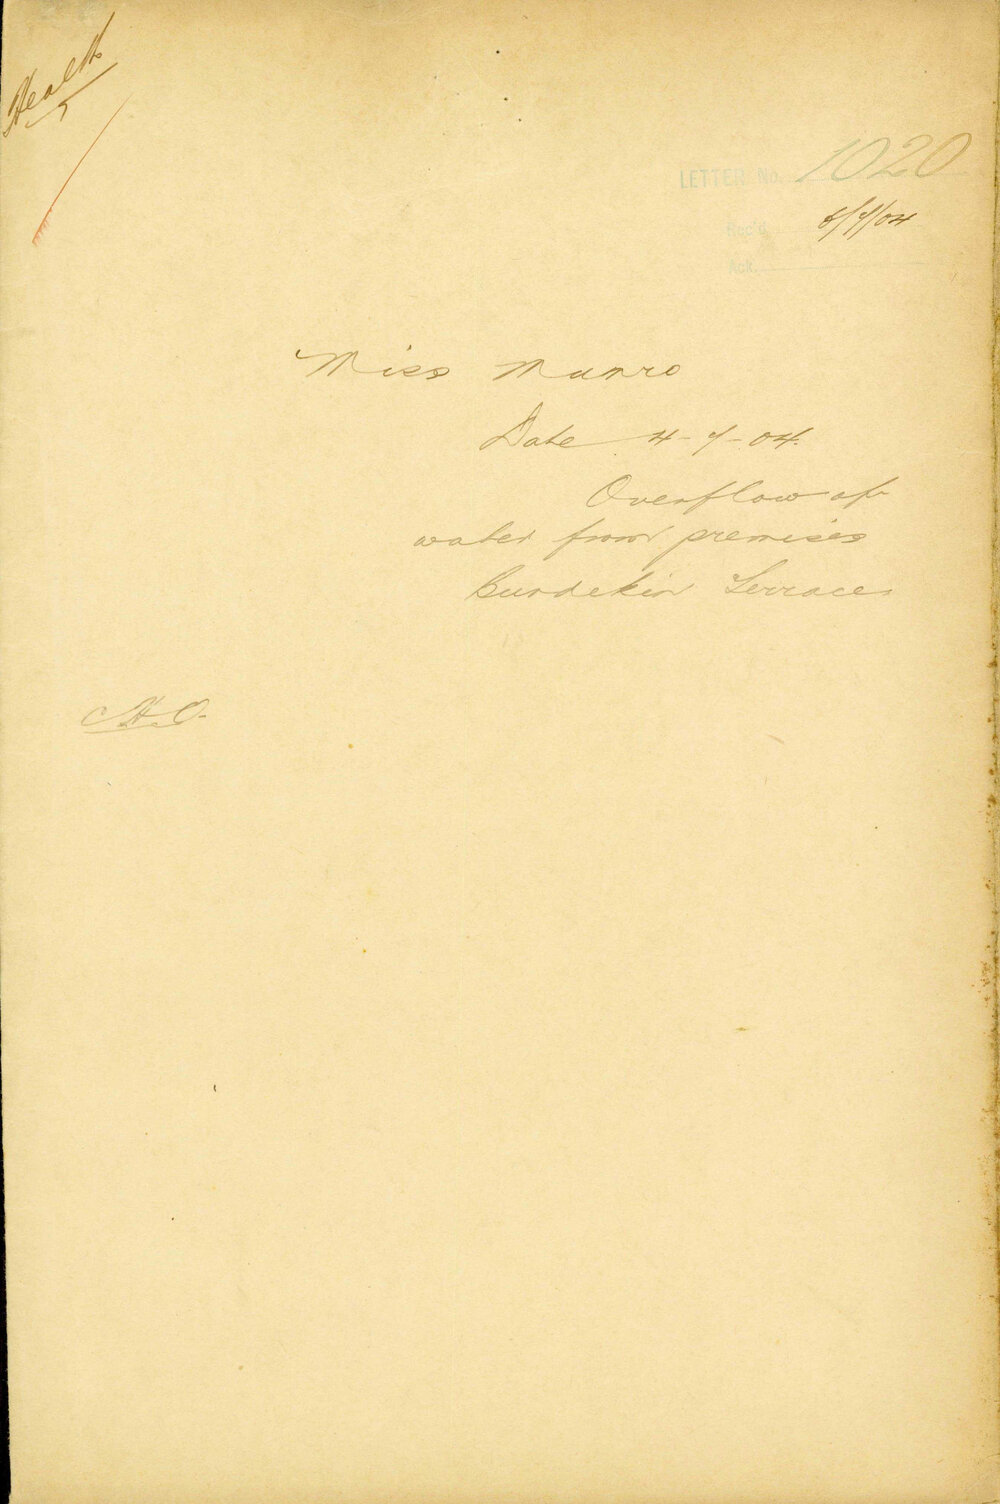 Health
LETTER No. 1020
Rec'd 6/7/04
Ack.
Miss Munro
Date 4-7-04.
Overflow of
water from premises
Burdekin Terrace
H.O.